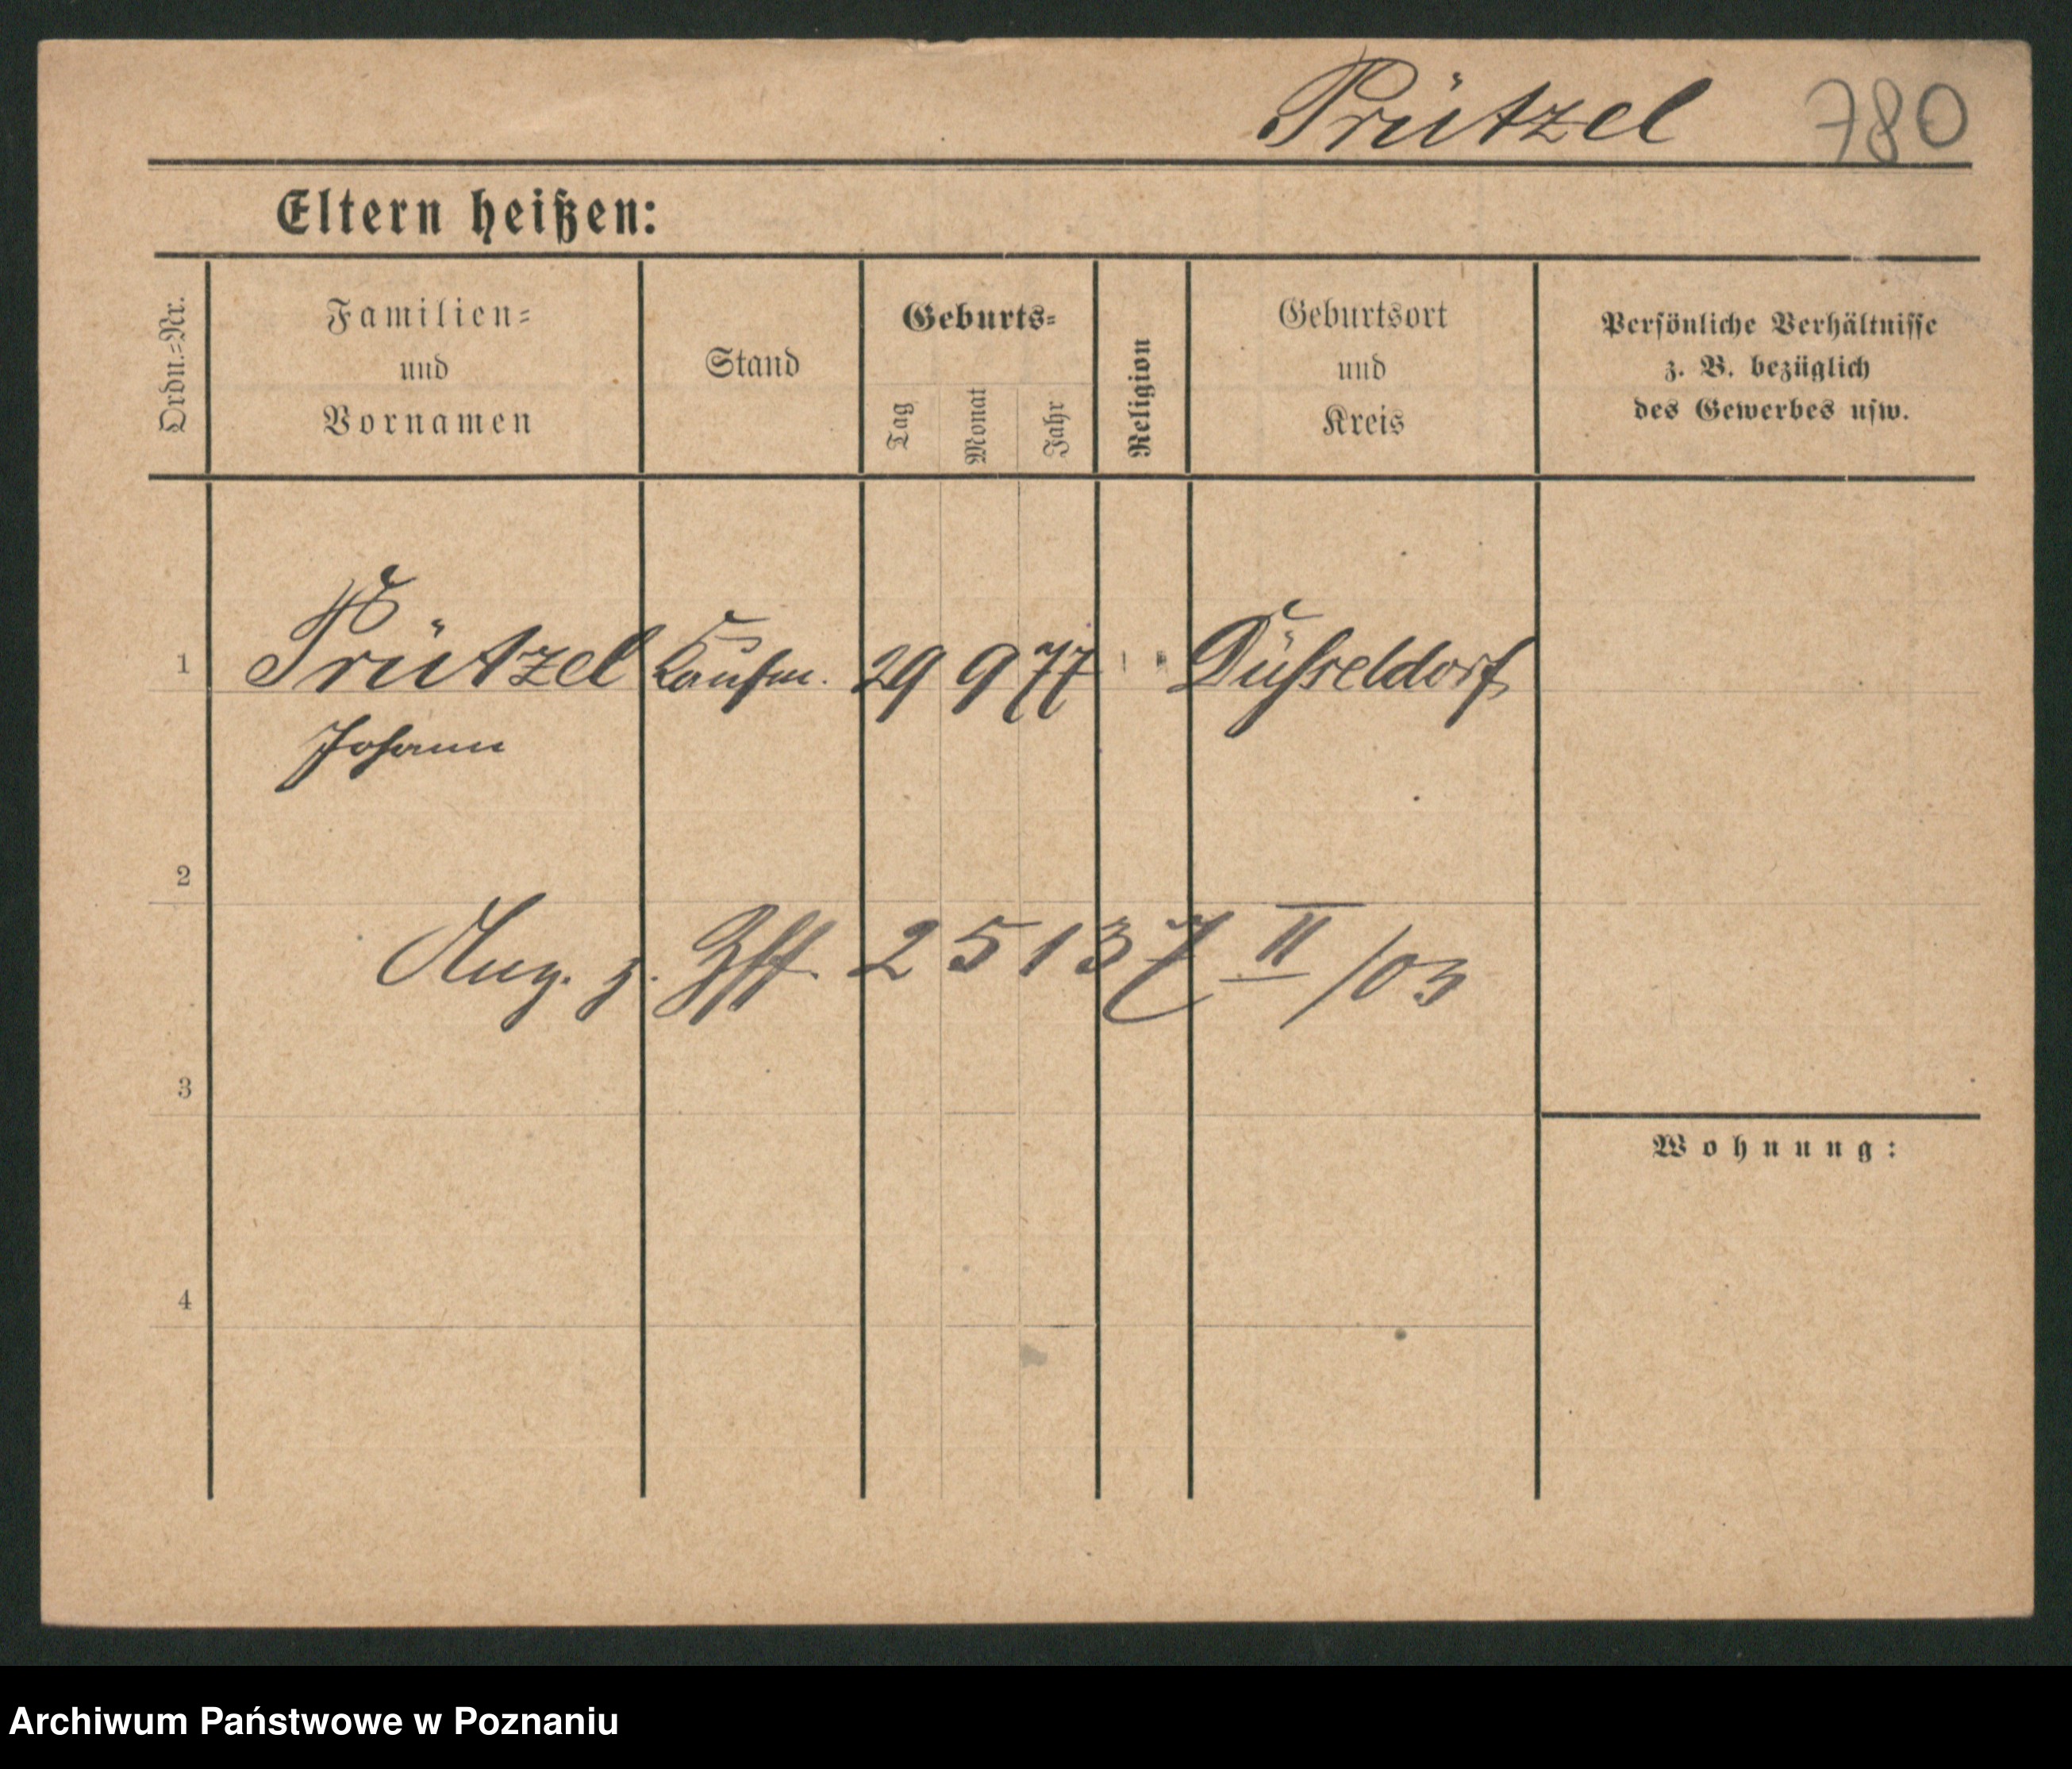 Prützel 780
Eltern heißen:
Ordn.=Nr.
Familien=
und
Vornamen
Stand
Geburts=
Tag
Monat
Jahr
Religion
Geburtsort
und
Kreis
Persönliche Verhältnisse
z. B. bezüglich
des Gewerbes usw.
1 Prützel Kaufm. 29 9 77 Düsseldorf
Johann
2
Ang. z. 25137 II/03
3
Wohnung:
4
Archiwum Państwowe w Poznaniu